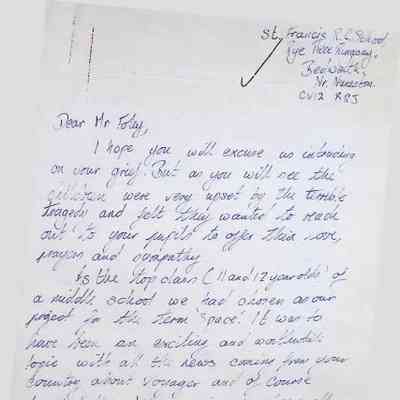 St, Francis R.C. School,
Rye Piece Ringway,
Bedworth,
Nr. Nuneaton.
CV12
Dear Mr Foley,
I hope you will excuse us intruding
on your grief. But as you will see the
children were very upset by the terrible
tragedy and felt they wanted to reach
out to your pupils to offer their love,
prayers and sympathy
As the top class (11 and 12 year olds) of
a middle school we had chosen as our
project for the term 'space'. It was to
have been an exciting and worthwhile
topic with all the news coming from your
country about Voyager and of course